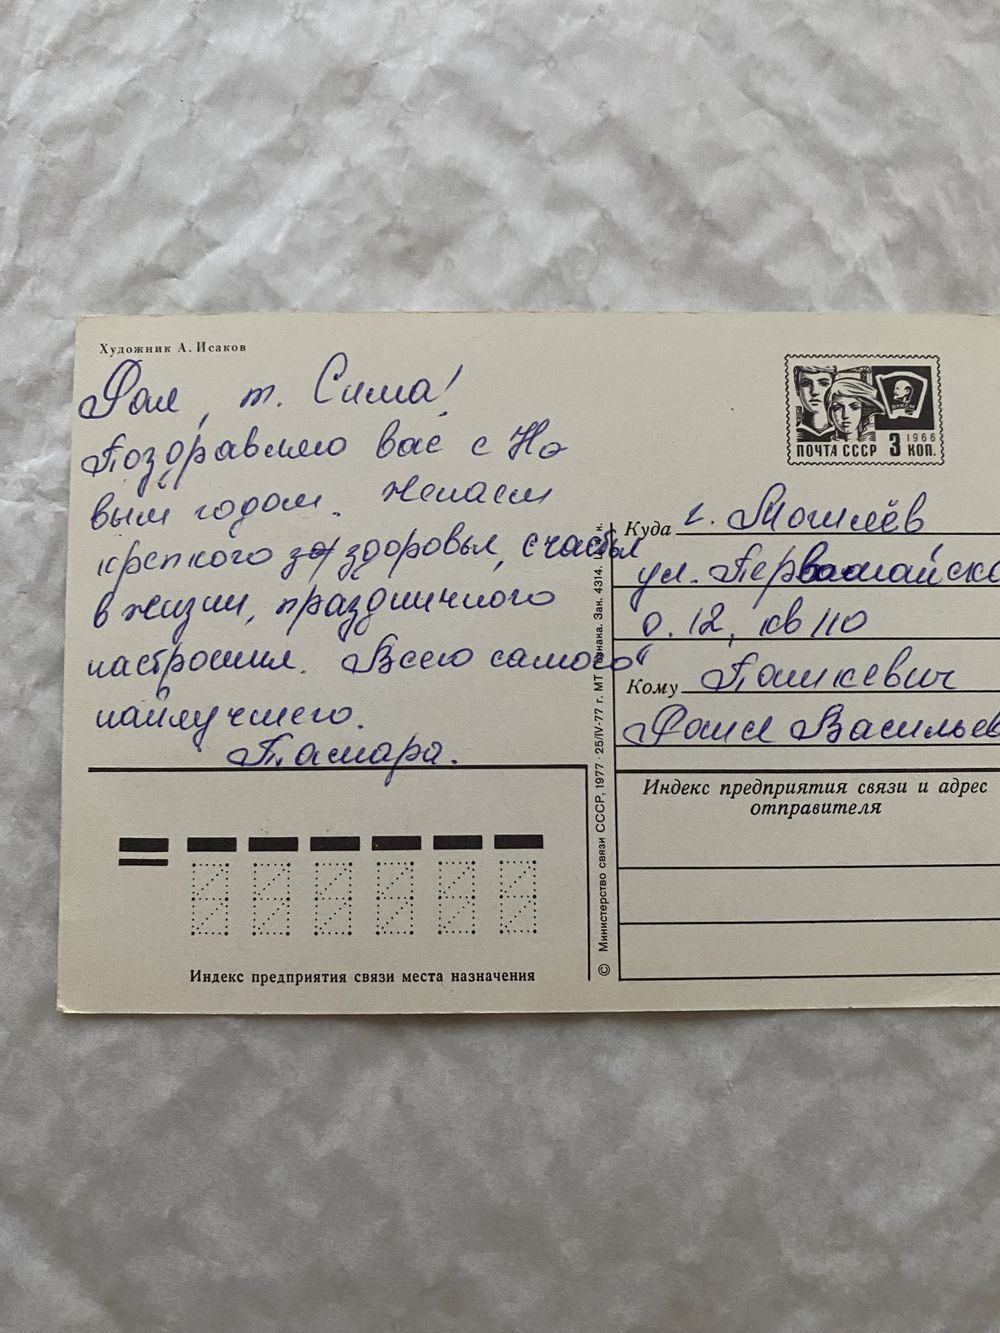 Художник А. Исаков
Фая, т. Сима!
Поздравляю вас с Но
вым годом. Желаем
крепкого здоровья, счастья
в жизни, праздничного
настроения. Всего самого
наилучшего.
Тамара.
Индекс предприятия связи места назначения
© Министерство связи СССР, 1977 · 25/IV-77 г. МТ Гознака. Зак. 4314. Ц. к.
ПОЧТА СССР 3 КОП.
1966
ВЛКСМ
Куда г. Могилёв
ул. Первомайска
д. 12, кв 110
Кому Пашкевич
Фаия Васильев
Индекс предприятия связи и адрес
отправителя